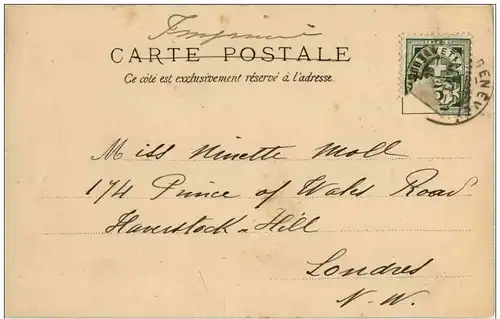 Imprimé
CARTE POSTALE
Ce côté est exclusivement réservé à l'adresse.
GENÈVE
Miss Ninette Moll
174 Prince of Wales Road
Haverstock-Hill
Londres
N.W.